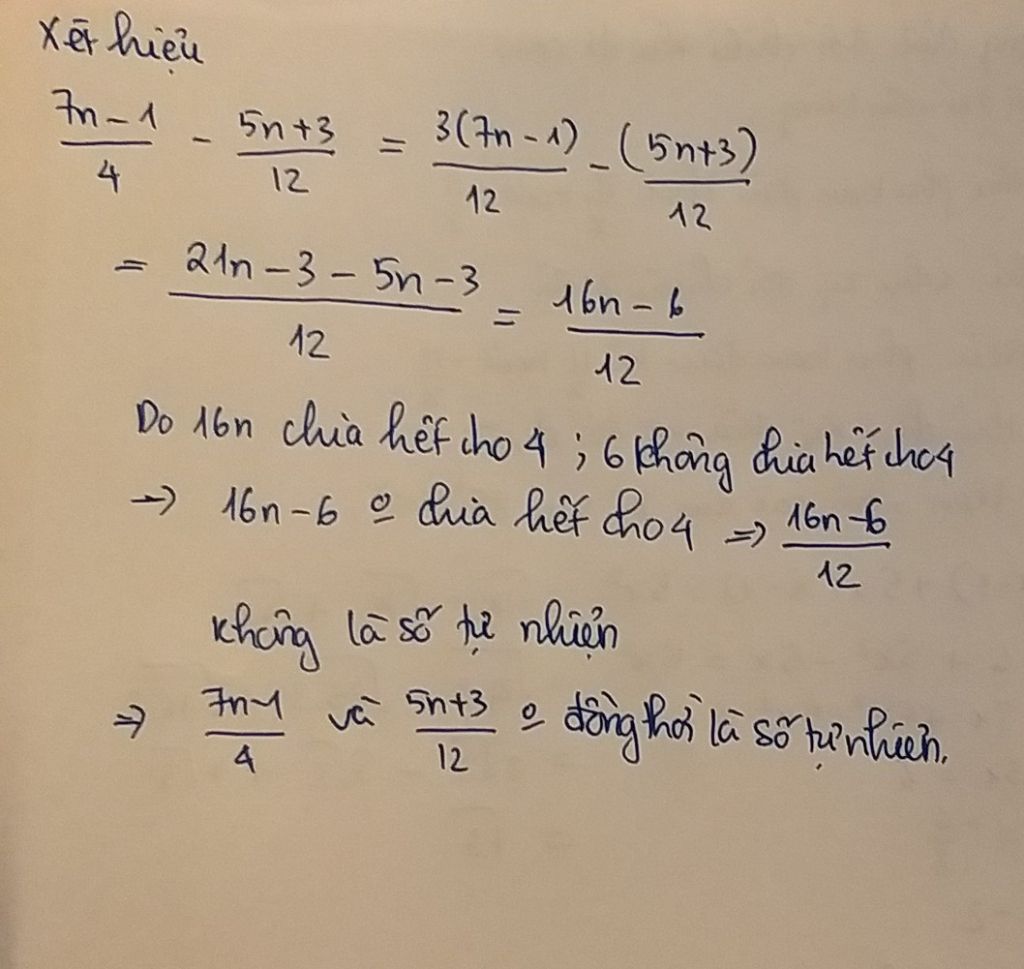 Xét hiệu
7n-1/4 - 5n+3/12 = 3(7n-1)/12 - (5n+3)/12
= 21n-3-5n-3/12 = 16n-6/12
Do 16n chia hết cho 4 ; 6 không chia hết cho 4
→ 16n-6 o chia hết cho 4 => 16n-6/12
không là số tự nhiện
=> 7n-1/4 và 5n+3/12 o đồng thời là số tự nhiên.